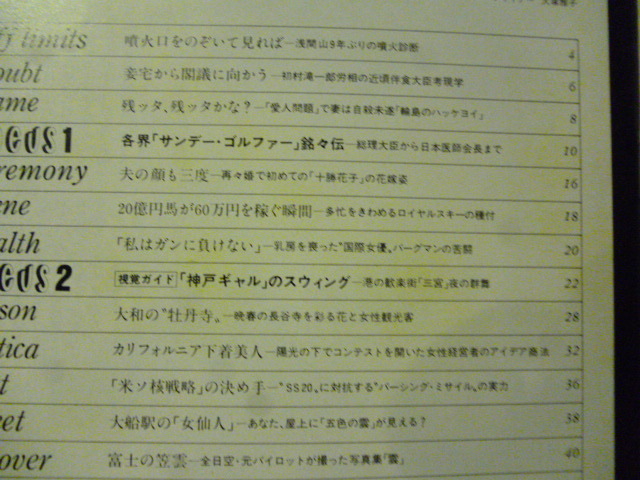 limits 噴火口をのぞいて見れば—浅間山9年ぶりの噴火診断 4
oubt 妾宅から閣議に向かう—初村滝一郎労相の近頃伴食大臣考現学 6
ame 残ッタ、残ッタかな?—「愛人問題」で妻は自殺未遂「輪島のハッケヨイ」 8
eeds 1 各界「サンデー・ゴルファー」銘々伝—総理大臣から日本医師会長まで 10
remony 夫の顔も三度—再々婚で初めての「十勝花子」の花嫁姿 16
ene 20億円馬が60万円を稼ぐ瞬間—多忙をきわめるロイヤルスキーの種付 18
alth 「私はガンに負けない」—乳房を喪った"国際女優"バーグマンの苦闘 20
eeds 2 視覚ガイド「神戸ギャル」のスウィング—港の歓楽街「三宮」夜の群舞 22
son 大和の"牡丹寺"—晩春の長谷寺を彩る花と女性観光客 28
tica カリフォルニア下着美人—陽光の下でコンテストを開いた女性経営者のアイデア商法 32
t 「米ソ核戦略」の決め手—"SS20"に対抗する"パーシング・ミサイル"の実力 36
ret 大船駅の「女仙人」—あなた、屋上に「五色の雲」が見える? 38
over 富士の笠雲—全日空・元パイロットが撮った写真集「雲」 40